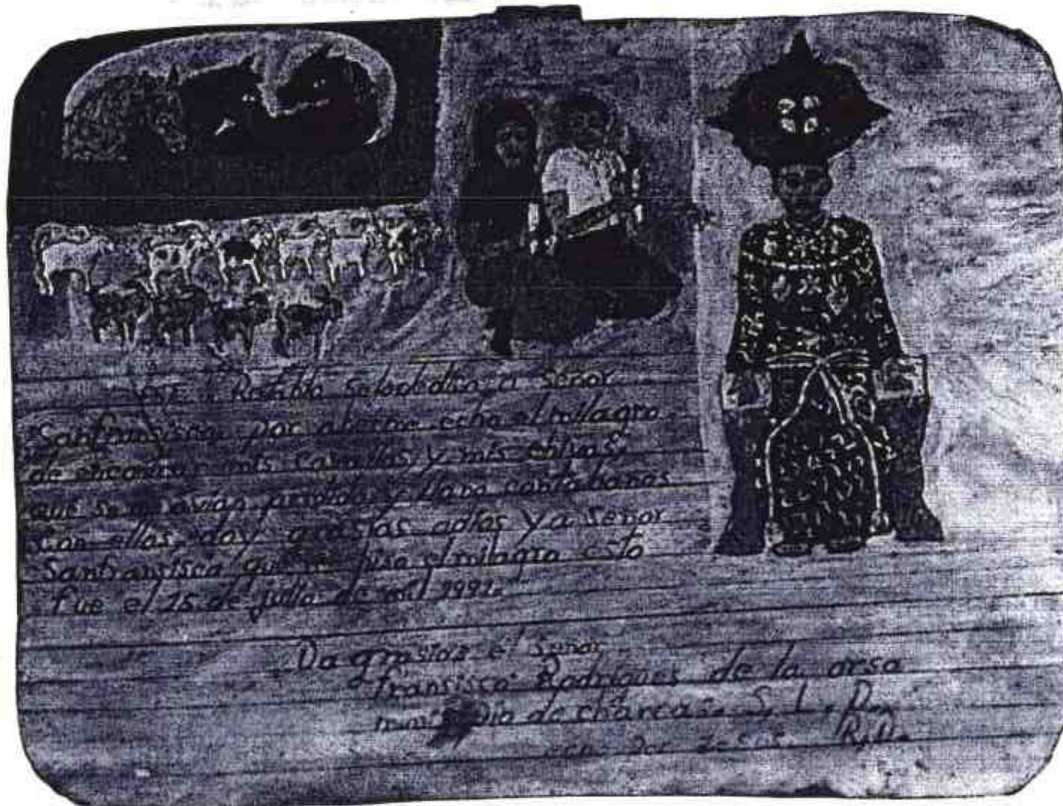 este Retablo selodedica a señor
Sanfransisco por aberme echo el milagro
de encontrar mis cavallos y mis chivas
que se me avian perdido y llano contabamos
con ellos, doy grasias adios y a señor
Sanfransisco que me hiso el milagro esto
fue el 15 de julio de mil 1992.
Da grasias el Señor
fransisco Rodrigues de la orsa
municipio de charcas. S. L. P.